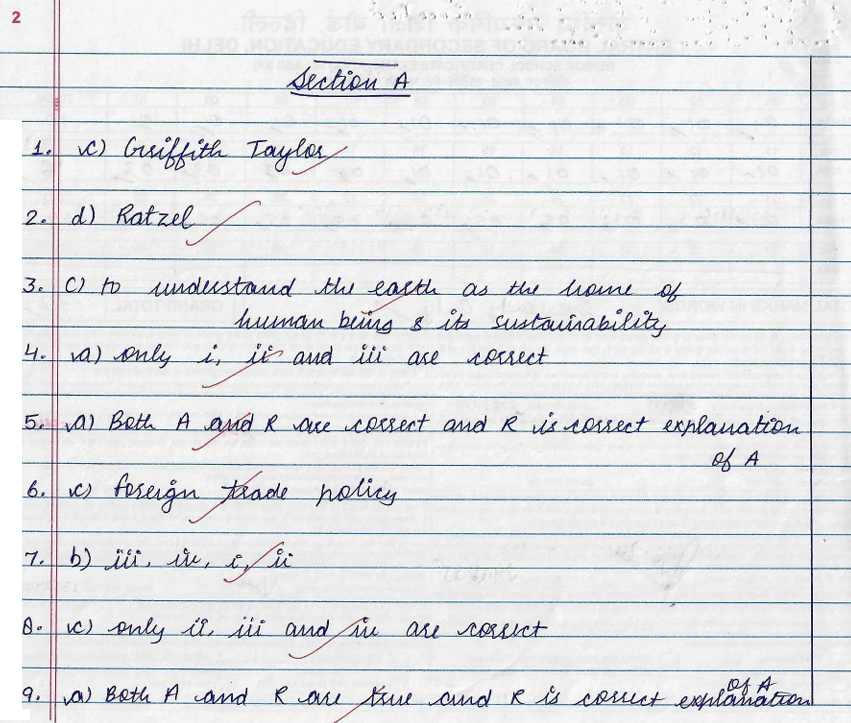 2
Section A
1. c) Griffith Taylor
2. d) Ratzel
3. C) to understand the earth as the home of
human being & its sustainability
4. a) only i, ii and iii are correct
5. a) Both A and R are correct and R is correct explanation
of A
6. c) foreign trade policy
7. b) iii, iv, i, ii
8. c) only ii, iii and iv are correct
9. a) Both A and R are true and R is correct explanation
of A